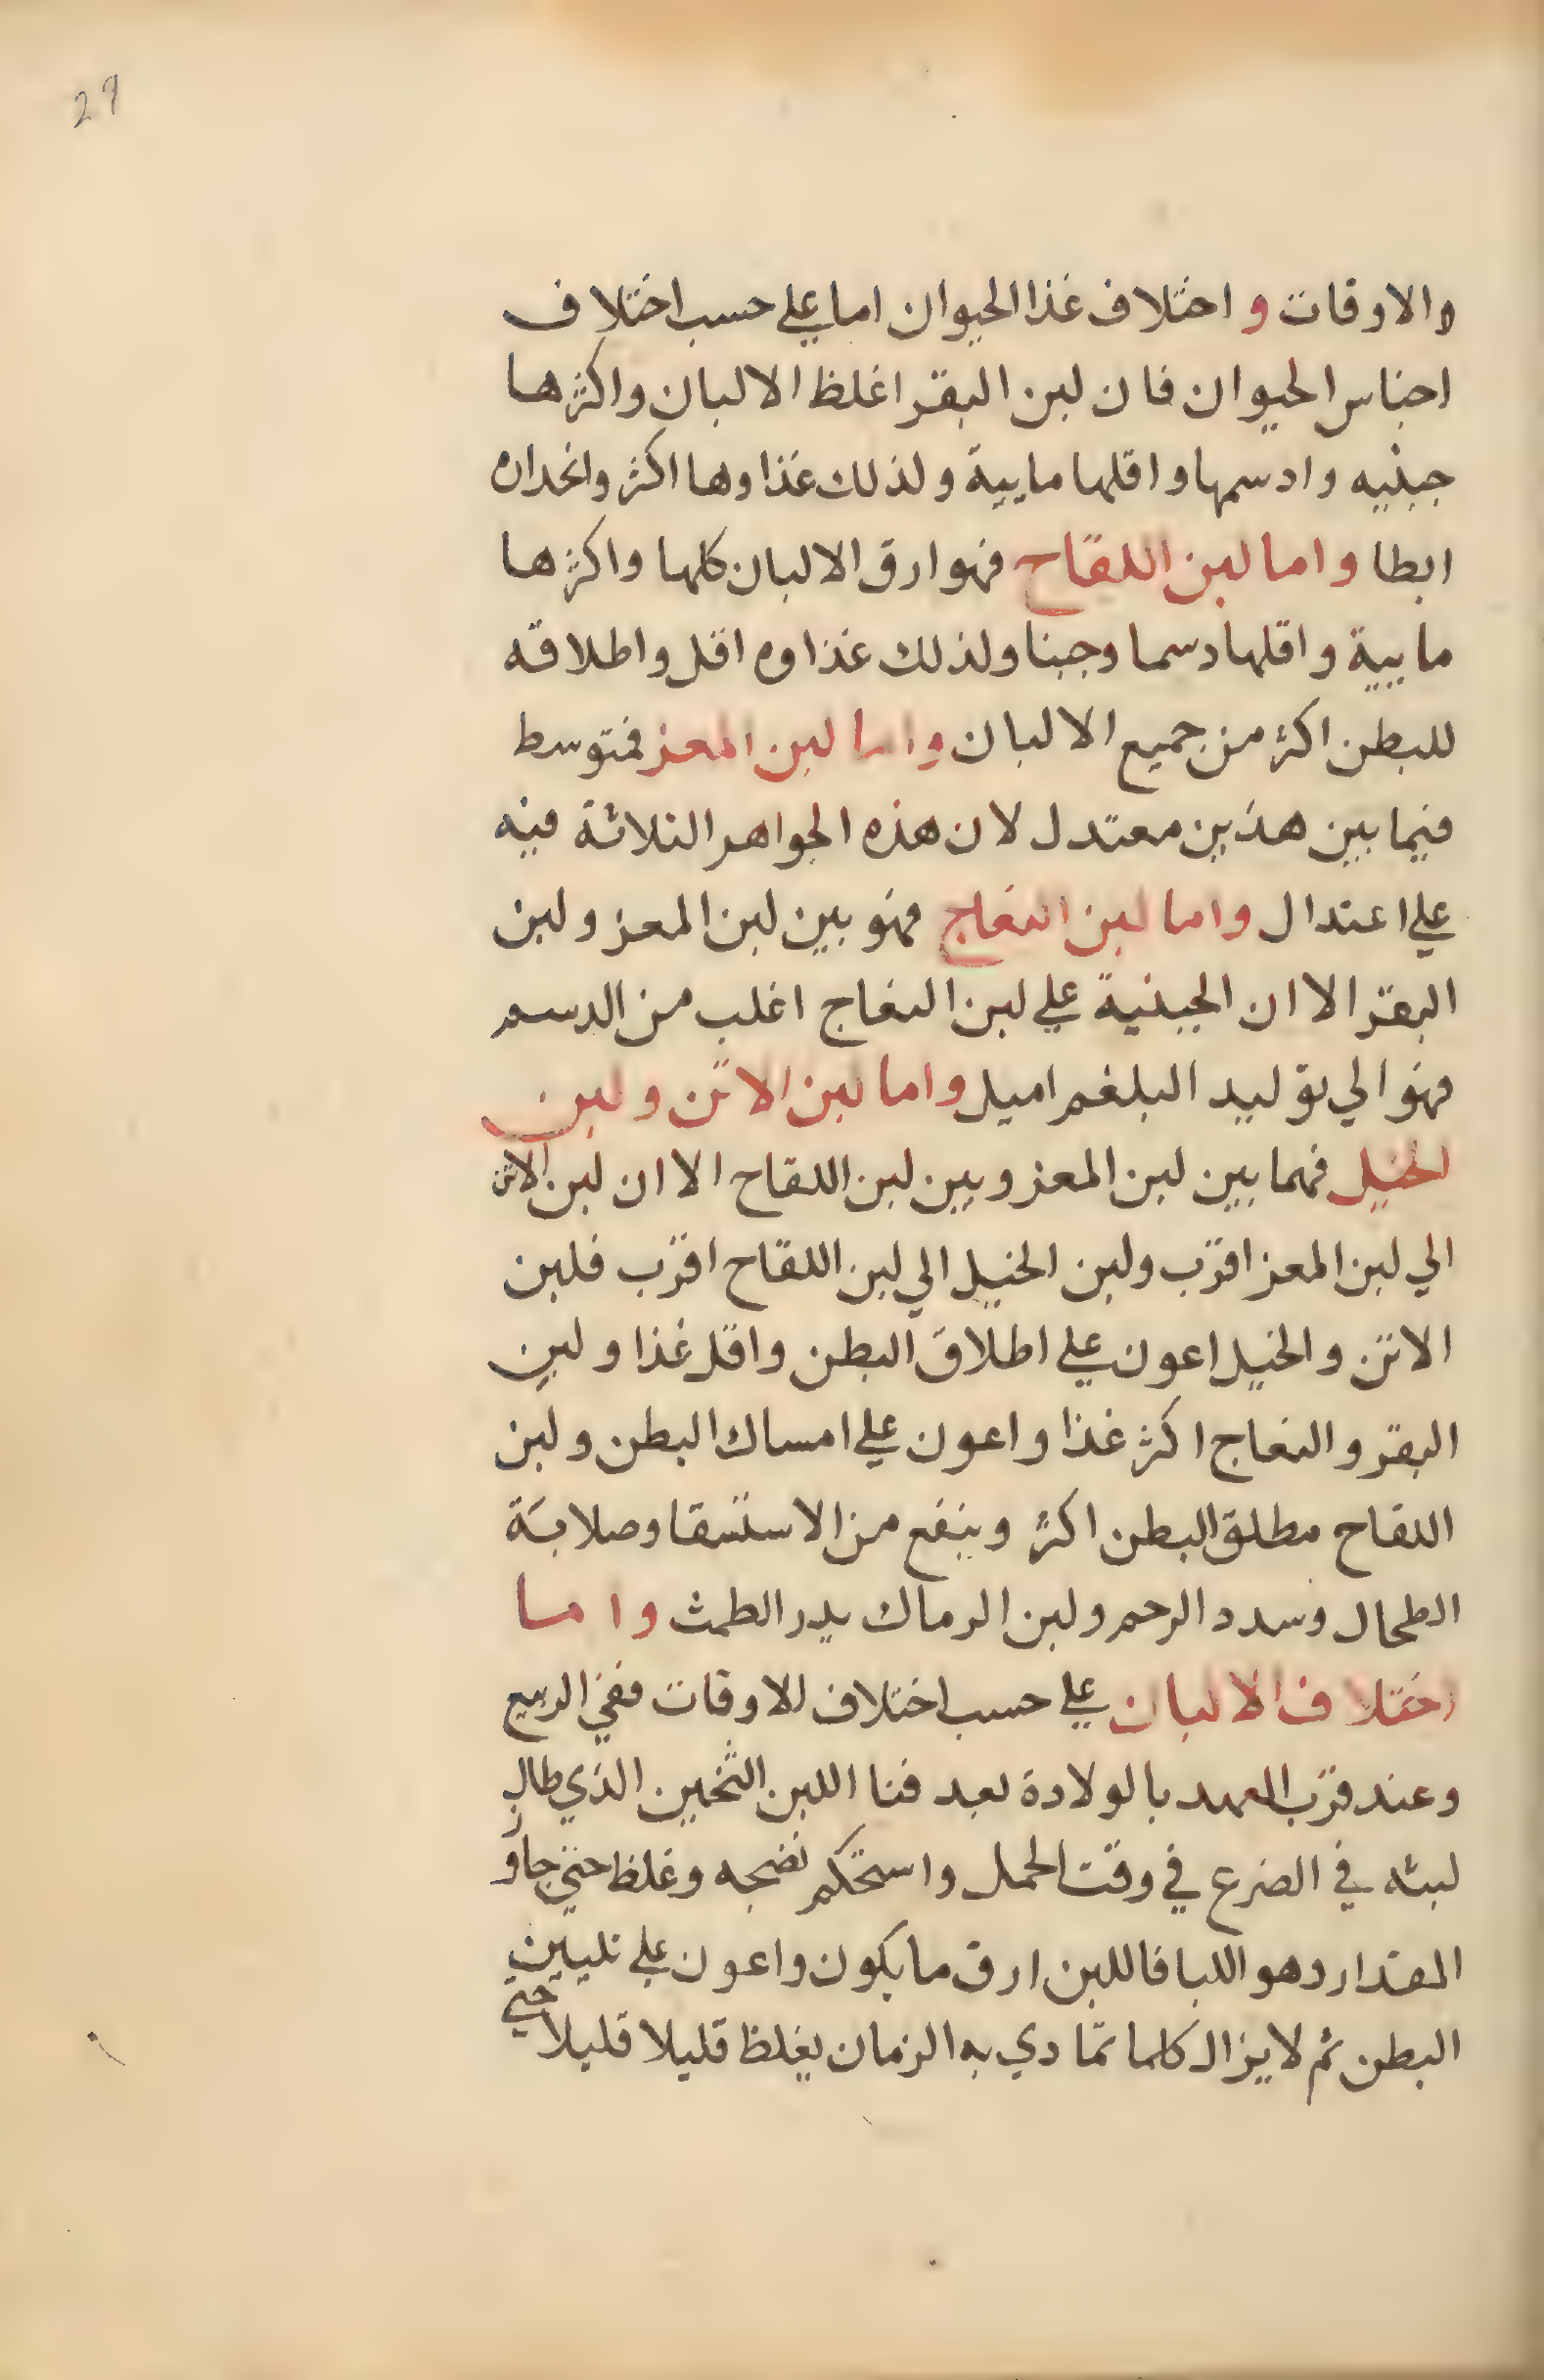 29
والاوقات و اختلاف غذا الحيوان اما علي حسب اختلاف
اجناس الحيوان فان لبن البقر اغلظ الالبان واكثرها
جبنيه وادسمها واقلها مايية ولذلك غذاوها اكثر وانحداره
ابطا واما لبن اللقاح فهو ارق الالبان كلها واكثرها
مايية واقلها دسما وجبنا ولذلك غذاوه اقل واطلاقه
للبطن اكثر من جميع الالبان واما لبن المعز فمتوسط
فيما بين هذين معتدل لان هذه الجواهر الثلاثة فيه
علي اعتدال واما لبن النعاج فهو بين لبن المعز ولبن
البقر الا ان الجبنية علي لبن النعاج اغلب من الدسم
فهو الي توليد البلغم اميل واما لبن الاتن ولبن
الخيل فهما بين لبن المعز وبين لبن اللقاح الا ان لبن الاتن
الي لبن المعز اقرب ولبن الخيل الي لبن اللقاح اقرب فلبن
الاتن والخيل اعون علي اطلاق البطن واقل غذا ولبن
البقر والنعاج اكثر غذا واعون علي امساك البطن ولبن
اللقاح مطلق البطن اكثر وينفع من الاستسقا وصلابة
الطحال وسدد الرحم ولبن الرماك يدر الطمث واما
اختلاف الالبان علي حسب اختلاف الاوقات ففي الربيع
وعند قرب العهد بالولادة بعد فنا اللبن الثخين الذي طال
لبثه في الضرع في وقت الحمل واستحكم نضجه وغلظ حتي جاوز
المقدار وهو اللبا فاللبن ارق ما يكون واعون علي تليين
البطن ثم لا يزال كلما تمادي به الزمان يغلظ قليلا قليلا حتي